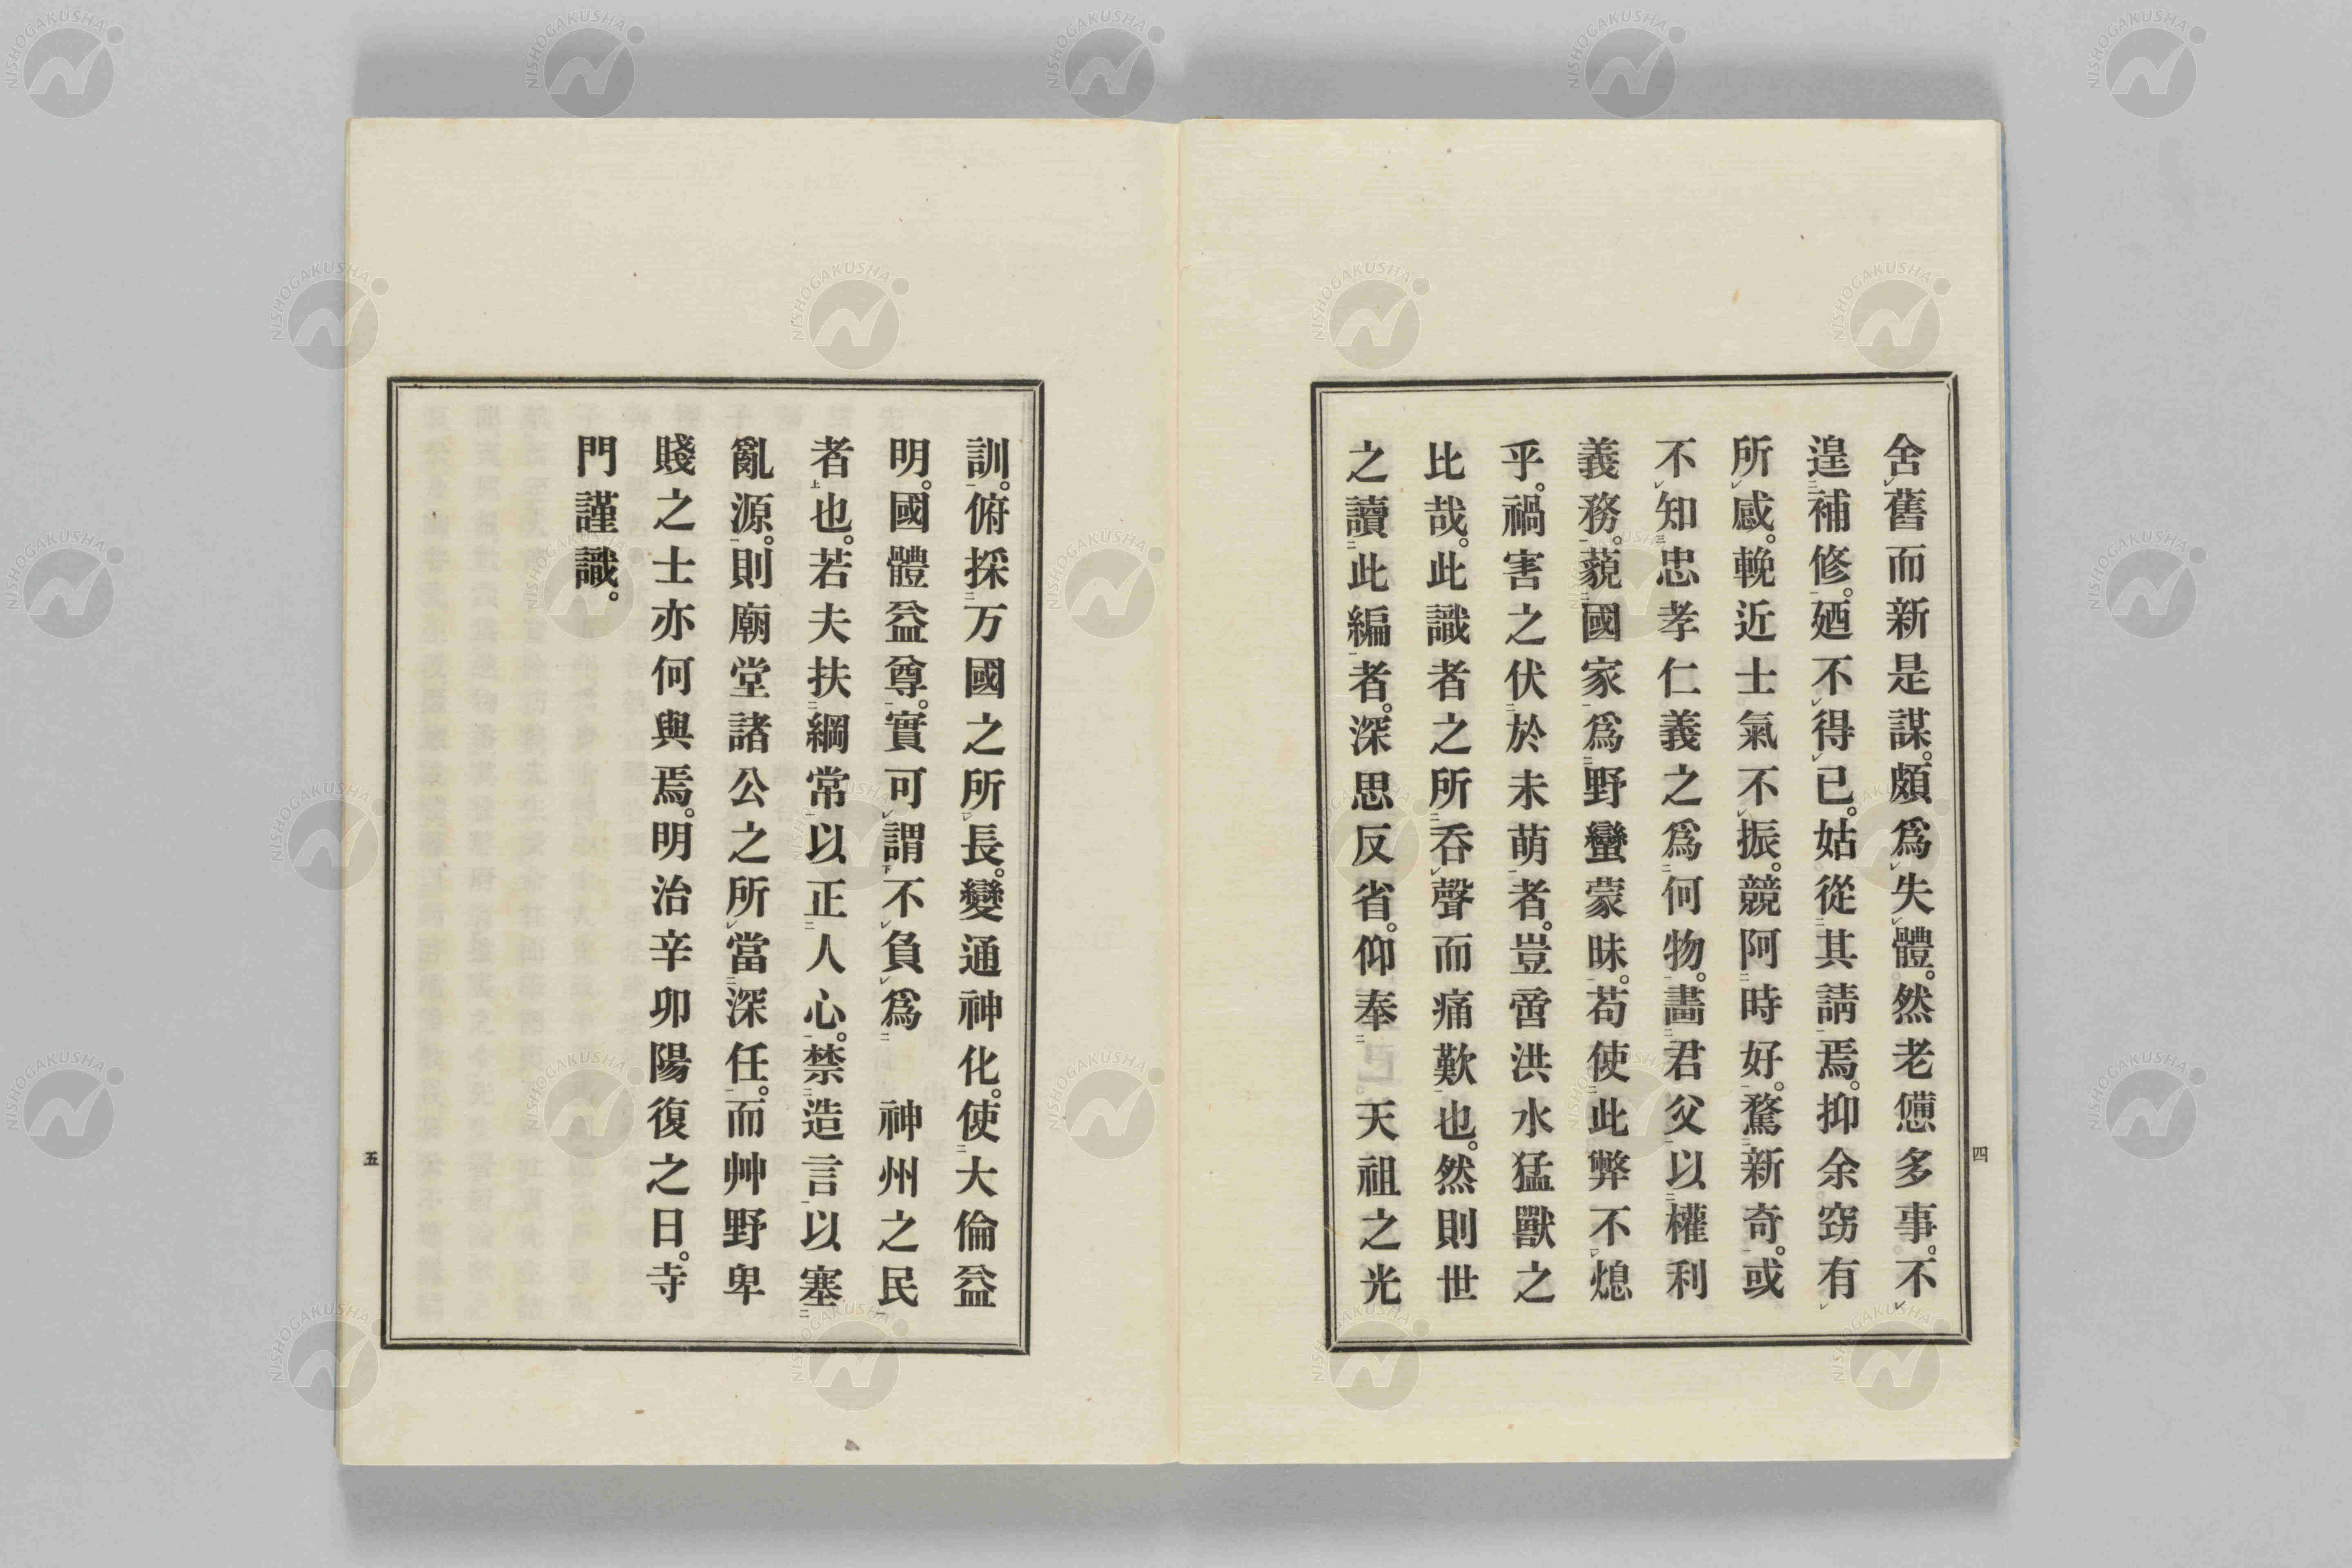 舍舊而新是謀。頗爲失體。然老憊多事。不
遑補修。廼不得已。姑從其請焉。抑余窃有
所感。輓近士氣不振。競阿時好。騖新奇。或
不知忠孝仁義之爲何物。畵君父以權利
義務。藐國家爲野蠻蒙昧。苟使此弊不熄
乎。禍害之伏於未萌者。豈啻洪水猛獸之
比哉。此識者之所呑聲而痛歎也。然則世
之讀此編者。深思反省。仰奉 天祖之光
四
訓。俯採万國之所長。變通神化。使大倫益
明。國體益尊。實可謂不負爲 神州之民
者也。若夫扶綱常以正人心。禁造言以塞
亂源。則廟堂諸公之所當深任。而艸野卑
賤之士亦何與焉。明治辛卯陽復之日。寺
門謹識。
五
NISHOGAKUSHA